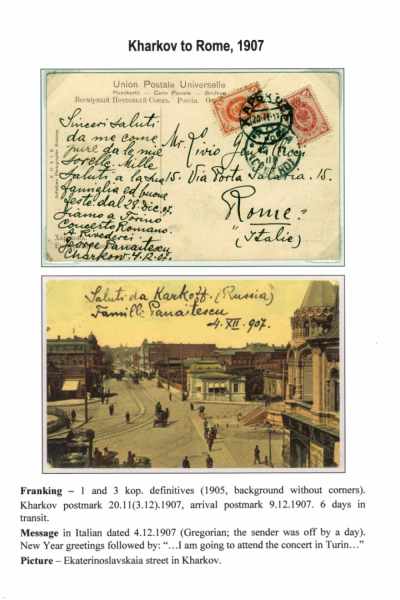 Kharkov to Rome, 1907
Union Postale Universelle
Postkarte — Carte Postale —
Всемірный Почтовый Союзъ. Россія.
Sinceri saluti
da me come
pure da le mie
sorelle. Mille
saluti a la sua
famiglia ed buone
feste. dal 28. Dic. 07.
siamo a Torino
Concerto Romano.
A Rivederci
George Panaitescu
Charkow 4.12.07.
Mr. Livio
15. Via Porta Salaria. 15.
Rome.
(Italie)
Saluti da Karkoff. (Russia)
Famille Panaitescu
4. XII. 907.
Franking – 1 and 3 kop. definitives (1905, background without corners).
Kharkov postmark 20.11(3.12).1907, arrival postmark 9.12.1907. 6 days in
transit.
Message in Italian dated 4.12.1907 (Gregorian; the sender was off by a day).
New Year greetings followed by: “…I am going to attend the concert in Turin…”
Picture – Ekaterinoslavskaia street in Kharkov.